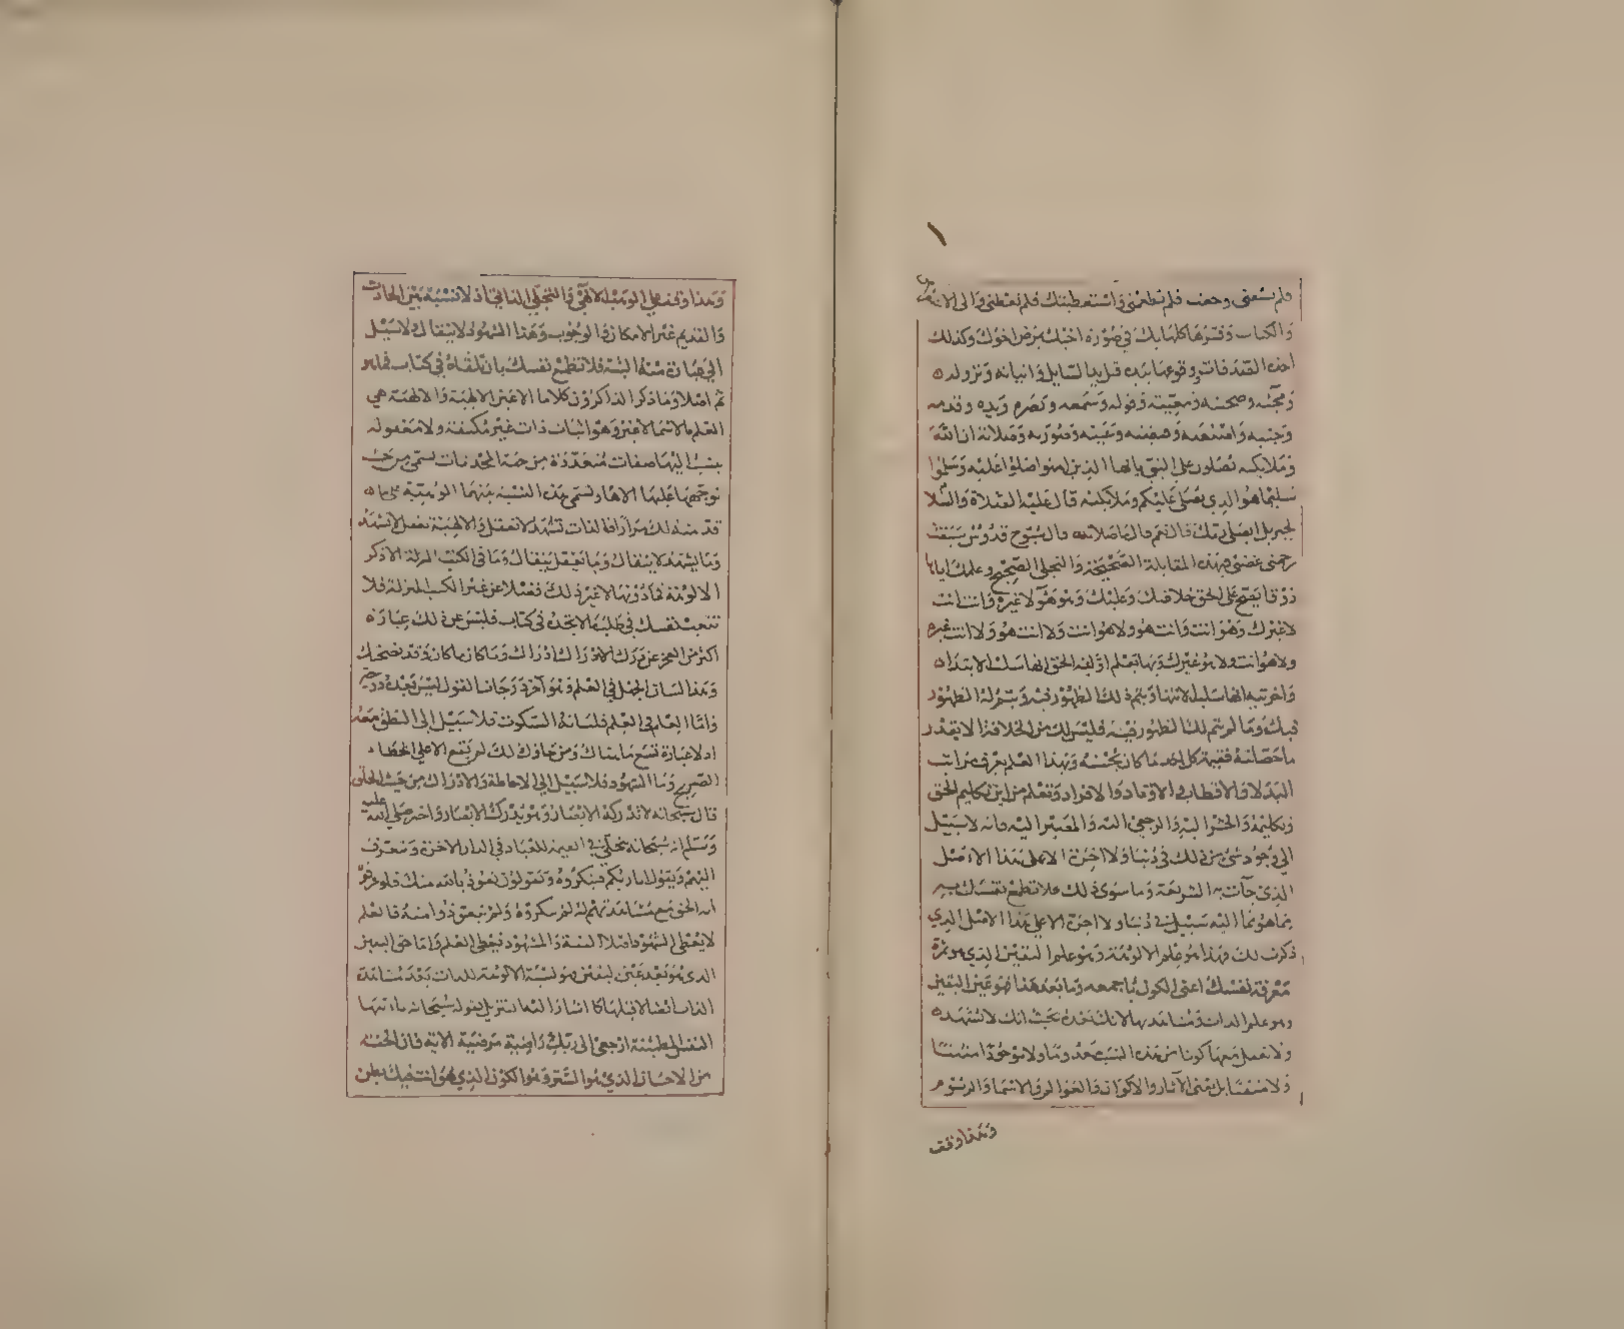 فلم تسقني وجعت فلم تطعمني واستعطيتك فلم تعطني والى الاعراض
والكتاب وفسرها كلها بك في صورة اخيك مرض اخوك وكذلك
اخذه الصدقات ووقوعها بيده قبل يد السايل واتيانه ونزوله
ومحبته وضحكه ومعيته وقوله وسمعه وبصره ويده وقدمه
وجنبه وقبضته وغيبته وصورته وصلاته ان الله
وملايكته يصلون على النبي يايها الذين امنوا صلوا عليه وسلموا
تسليما هو الذي يصلي عليكم وملايكته قال عليه الصلاة والسلام
لجبريل ايصلي ربك قال نعم قال ما صلاته قال سبوح قدوس سبقت
رحمتي غضبي فبهذه المقابلة الصحيحة والتجلي الصحيح وعلمك اياها
ذوقا يصح على الحق خلافتك وعليك وهو هو لا غيره وانت انت
لا غيرك وهو انت وانت هو ولا هو انت ولا انت هو ولا انت غيره
ولا هو انت ولا هو غيرك وبها تعلم اولية الحق انها سلب الابتداء
واخريته انها سلب الانتهاء ويتم ذلك الظهور فيه ويتم له الظهور
فيك وما لم يتم لك الظهور فيه فليس لك من الخلافة الا بقدر
ما حصلته فقيمة كل احد ما كان يحسنه وبهذا العلم يعرف مراتب
البدلا والاقطاب والاوتاد والافراد وتعلم من اين تكليم الحق
وتكليمه والحشر اليه والرجعي اليه والمصير اليه فانه لا سبيل
الى وجود شي من ذلك في دنيا ولا اخرة الا على هذا الاصل
الذي جآت به الشريعة وما سوى ذلك فلا تطمع نفسك به
فما هو ثم اليه سبيل في دنيا ولا اخرة الا على هذا الاصل الذي
ذكرت لك فهذا هو علم الالوهة وهو علم اليقين الذي هو ثمرة
معرفة نفسك اعني الكون باجمعه وما بعد هذا هو عين اليقين
وهو علم الذات ومشاهدتها لانك تجده بحيث انك لا تشهده
ولا تعقل معها كونا من هذه النسب بعد وما ولا موجودا مثبتا
ولا منفيا بل تفنى الآثار والاكوان والعوالم والاسما والرسوم
وهذا وقف
وهذا وقف على الوهب الالهي والتجلي الذاتي اذ لا نسبة بين الحادث
والقديم غير الامكان والوجوب وهذا الشهود لا ينقال ولا سبيل
الى عبارة عنه البتة فلا تطمع نفسك بان تلقاه في كتاب فما هو
ثم اصلا وما ذكر الذاكرون كلاما الا عين الالهية والالهية هي
العلم بالاسما لا غير وهو اثبات ذات غير مكيفة ولا معقولة
ينسب اليها صفات متعددة من جهة المحدثات تسمى من حيث
توجهها عليها الاها وتسمى هذه النسبة بينهما الوهية
قد مثله لك مرارا فالذات تشهد لا تعقل والالهية تعقل لا تشهد
وما يشهد لا ينقال وما يعقل ينقال وما في الكتب المنزلة الا ذكر
الالوهة فما دونها لا غير ذلك فضلا عن غير الكتب المنزلة فلا
تتعب نفسك في طلب ما لا تجده في كتاب فليس عن ذلك عبارة
اكثر من العجز عن درك الادراك ادراك وما كان ما كان وقد نصحتك
وهذا لسان الجهل في العلم وهو آخر درجاتنا لقول ليس بعده
واما العلم في العلم فلسانه السكوت فلا سبيل الى النطق معه
اذ لا عبارة تسع ما هناك ومن حاول ذلك لم يقع الا على الخطاء
الصريح وما الشهود فلا سبيل الى الاحاطة والادراك من حيث الحق
قال سبحانه لا تدركه الابصار وهو يدرك الابصار واخبر صلى الله عليه
وسلم انه سبحانه يتجلى في القيمة للعباد في الدار الاخرة ويتعرف
اليهم ويقول انا ربكم فينكروه ويقولون نعوذ بالله منك فلو عرفوا
انه الحق مع مشاهدتهم له لم ينكروه ولم يتعوذوا منه فالعلم
لا يعطي الشهود اصلا البتة والشهود يعطي العلم واما حق اليقين
الذي هو بعد عين اليقين هو نسبة الالوهة للذات بعد مشاهدة
الذات ايضا لا قبلها كما اشار اليها التنزيل بقوله سبحانه يا ايتها
النفس المطمئنة ارجعي الى ربك راضية مرضية الآية فان الجنة
من الاجنان الذي هو الستر وهو الكون الذي هو انت فبك بطن